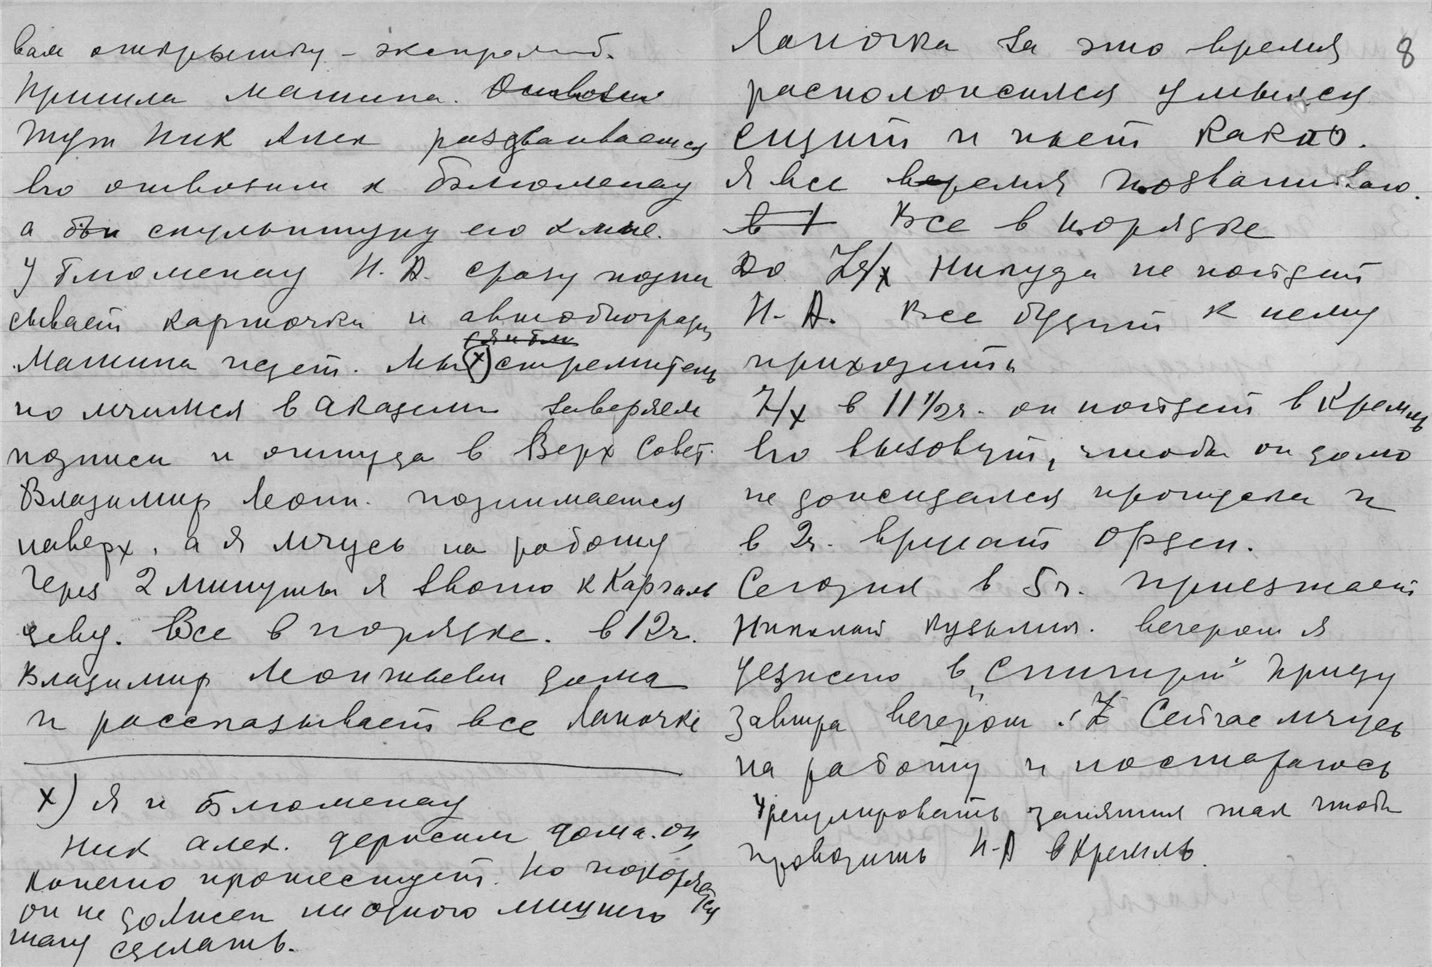 вам открытку – экспромт.
Пришла машина.
Тут Ник Алек раздваивается
Его отвозим к Блюменау
а скульптуру его к мне.
У Блюменау Н. А. сразу подпи
сывает карточки и автобиографию
Машина ждет. Мы х) стремитель
но мчимся в Академию заверяем
подписи и оттуда в Верх Совет.
Владимир Леон. поднимается
наверх, а я мчусь на работу
Через 2 минуты я звоню к
Все в порядке. В 12 ч.
Владимир Леонтьевич дома
и рассказывает все Лапочке
х) Я и Блюменау
Ник алек. держим дома. он
конечно протестует. Но покоряется
он не должен ни одного лишнего
шагу сделать.
8
Лапочка за это время
расположился умылся
сидит и пьет какао.
Я все время позваниваю.
Все в порядке
до 7/X Никуда не пойдет
Н. А. Все будут к нему
приходить
7/X в 11 1/2 ч. он пойдет в Кремль
Его вызовут, чтобы он долго
не дожидался пропуска и
в 2 ч. вручат Орден.
Сегодня в 5 ч. приезжает
Николай Кузьмич. Вечером я
уезжаю в „ Приеду
завтра вечером. Сейчас мчусь
на работу и постараюсь
урегулировать занятия так чтобы
проводить Н-А в Кремль.